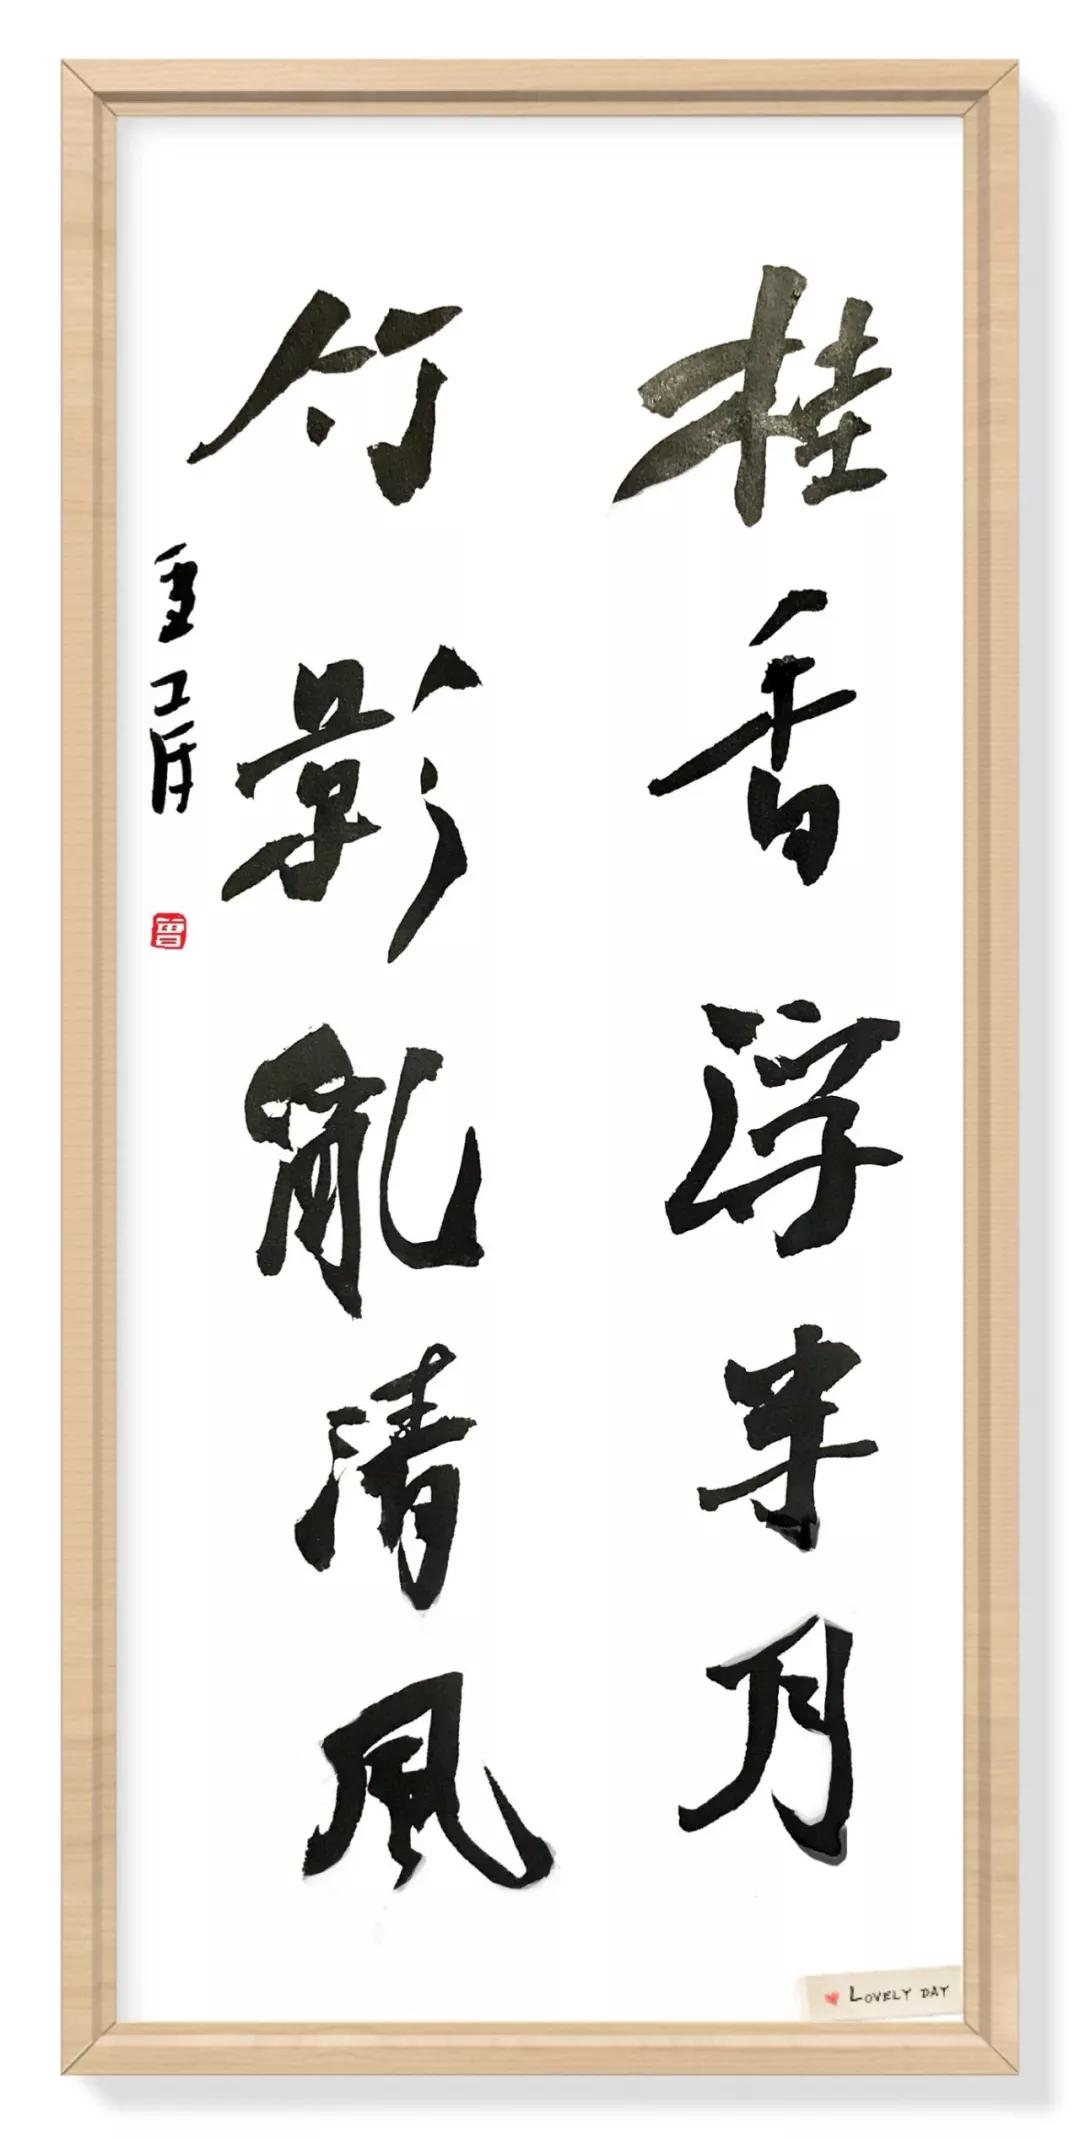 桂香浮半月
竹影亂清風
曾
LOVELY DAY